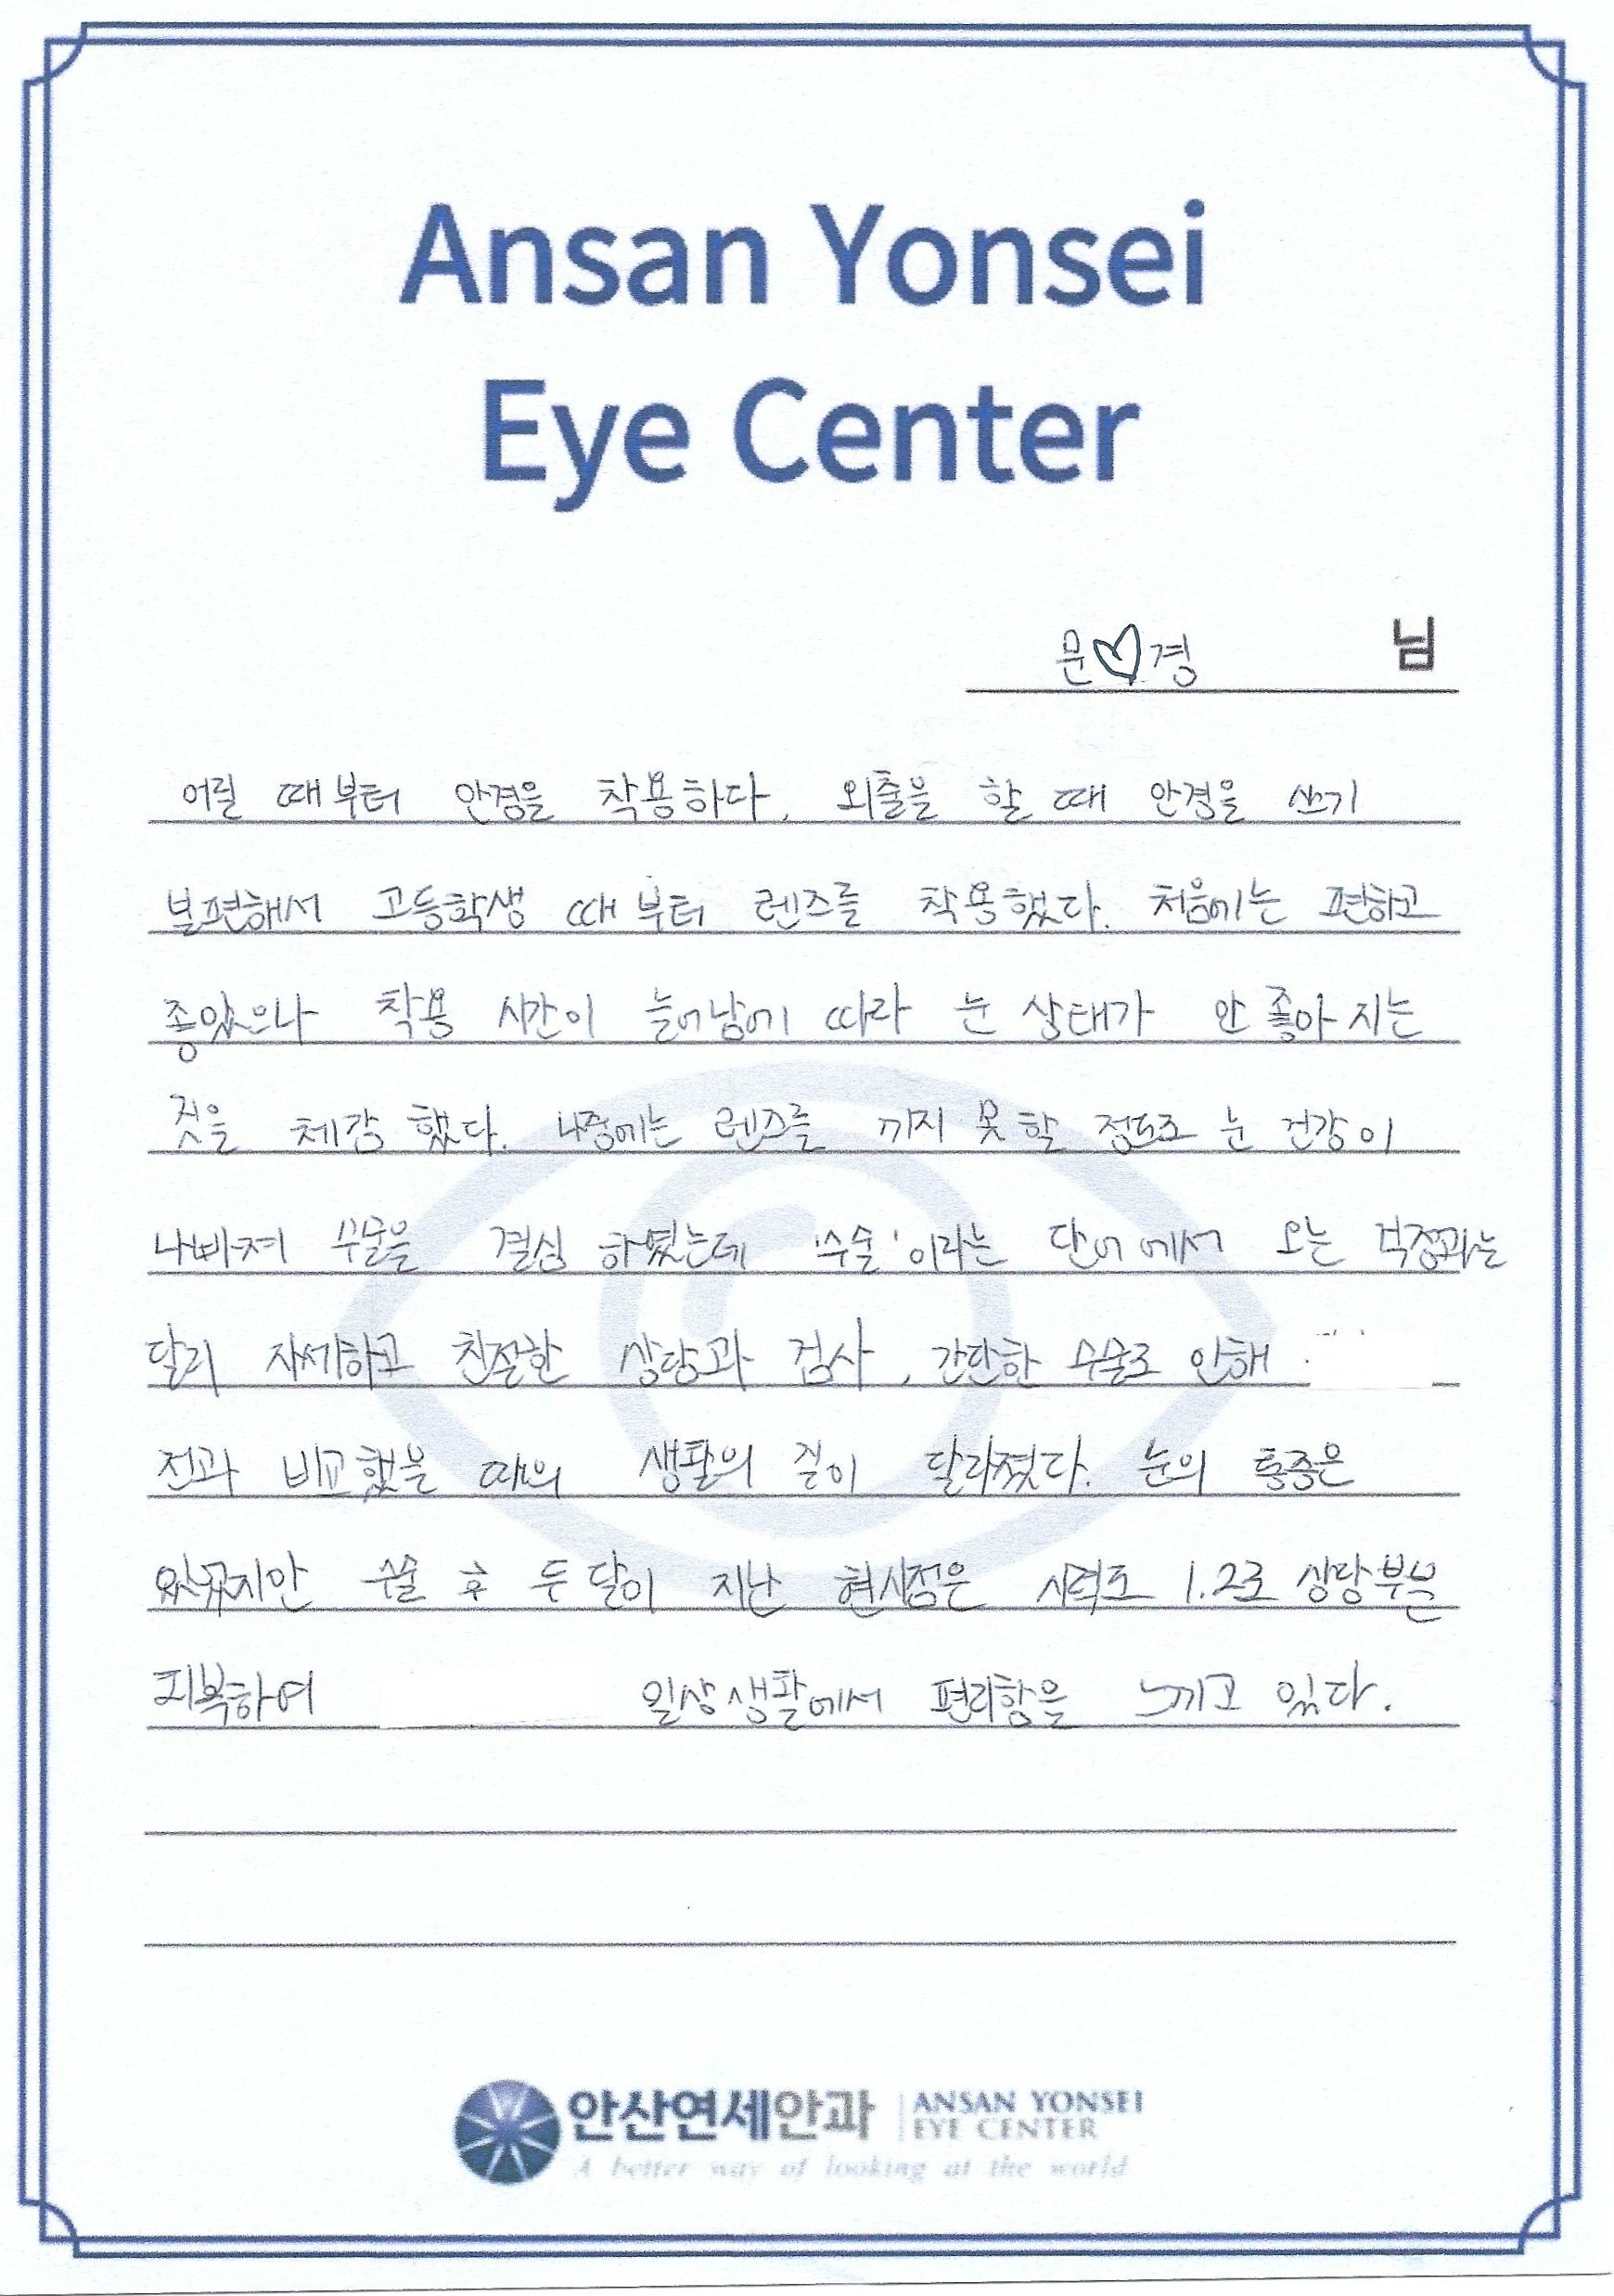 Ansan Yonsei
Eye Center
문♡경 님
어릴 때부터 안경을 착용하다, 외출을 할 때 안경을 쓰기
불편해서 고등학생 때부터 렌즈를 착용했다. 처음에는 편하고
좋았으나 착용 시간이 늘어남에 따라 눈 상태가 안 좋아지는
것을 체감했다. 나중에는 렌즈를 끼지 못할 정도로 눈 건강이
나빠져 수술을 결심하였는데 '수술'이라는 단어에서 오는 걱정과는
달리 자세하고 친절한 상담과 검사, 간단한 수술로 인해
전과 비교했을 때의 생활의 질이 달라졌다. 눈의 통증은
있었지만 수술 후 두 달이 지난 현시점은 시력도 1.2로 상당부분
회복하여 일상생활에서 편리함을 느끼고 있다.
안산연세안과 ANSAN YONSEI
EYE CENTER
A better way of looking at the world